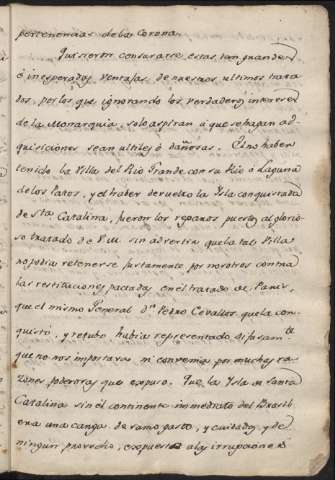 pertenencias de la Corona.
Quisieron censurarse estas tan grandes
é inesperadas ventajas de nuestros ultimos trata
dos, por los que ignorando los verdaderos intereses
de la Monarquia solo aspiran á que se hagan ad-
quisiciones sean utiles ó dañosas. El no haber
retenido la Villa del Rio Grande con su Rio ó Laguna
de los Patos, y el haber devuelto la Isla conquistada
de Sta. Catalina, fueron los reparos puestos al glorio-
so tratado de V.M. sin advertir que la tal Villa
no podia retenerse justamente por nosotros contra
las restituciones pactadas en el tratado de Paris,
que el mismo General Dn. Pedro Cevallos que la con-
quistó, y retubo habia representado difusamte.
que no nos importava ni convenia por muchas ra-
zones poderosas que expuso. Que la Isla de Santa
Catalina sin el continente inmediato del Brasil
era una carga de sumo gasto, y cuidados, y de
ningun provecho, expuesta a las irrupciones